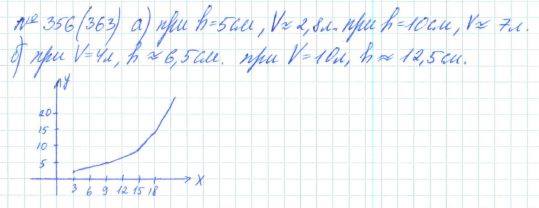 № 356(363) а) при h=5см, V≈2,8л. при h=10см, V≈ 7л.
б) при V=4л, h≈6,5см. при V=10л, h≈12,5см.
y
20
15
10
5
3 6 9 12 15 18 x